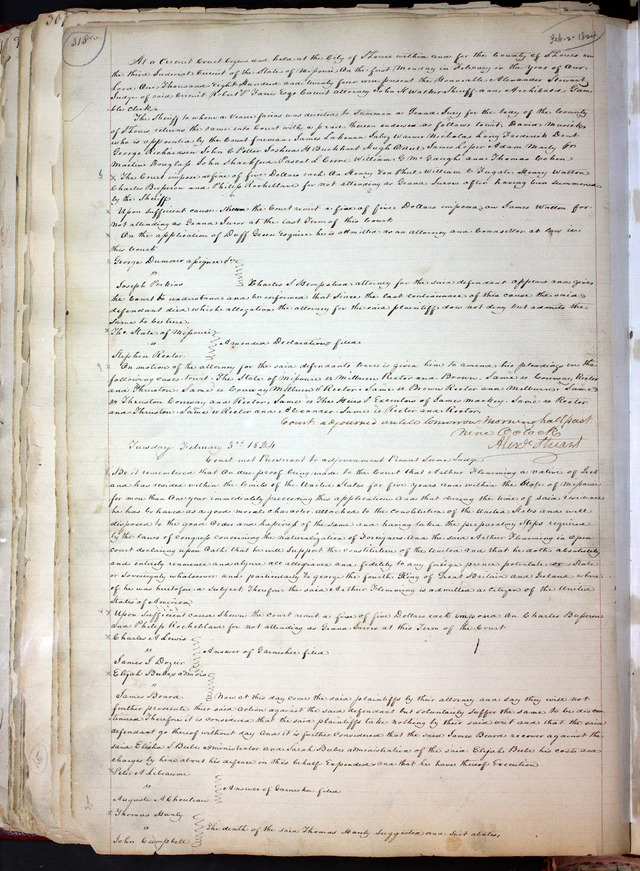 318
Feb. 2. 1824
At a Circuit Court begun and held at the City of St Louis within and for the County of St Louis in
the third Judicial Circuit of the State of Missouri on the first Monday in February in the year of our
Lord One Thousand Eight Hundred and twenty four were present the Honorable Alexander Stuart
Judge of said Circuit Robert Esqr Circuit attorney John K Walker Sheriff and Archibald Gam
ble clerk
The Sheriff to whom a Venire facias was directed to Summon a Grand Jury for the body of the County
of St Louis returns the same into Court with a panel thereon endorsed as follows towit; David Musick
who is appointed by the Court foreman, James Sabin Warner Nicholas Long Frederick Dent
George Richardson John C Potter Joshua H Burkhart Hugh James Loper Adam Marly
Martin Douglass John Shackford Pascal L Cerre William C McGaugh and Thomas Cohen
The Court impose a fine of five Dollars each on Henry Von Phul William C Fugate Henry Walton
Charles Bosseron and Philip Rocheblave for not attending as Grand Jurors after having been summoned
by the Sheriff
Upon sufficient cause the Court remit a fine of five Dollars imposed on James Walton for
not attending as Grand Juror at the last Term of this Court
On the application of Duff Green Esquire he is admitted as an attorney and Counsellor at law in
this Court
George Dummer assignee &c
"
Joseph Perkins Charles S Hempstead attorney for the said defendant appears and gives
the Court to understand and be informed that since the last continuance of this cause the said
defendant died which allegation the attorney for the said plaintiff does not deny but admits the
same to be true
The State of Missouri
" Amended Declaration filed
Stephen Rector
On motion of the attorney for the said defendants leave is given him to amend his pleadings in the
following cases towit: The State of Missouri vs Milburn Rector and Brown, Same vs Conway Rector
and Thruston Same vs Conway Milburn & Rector, Same vs Brown Rector and Milburn, Same
vs Thruston Conway and Rector, Same vs The Heirs & Executors of James Mackey, Same vs Rector
and Thruston Same vs Rector and Alexander Same vs Rector and Rector
Court adjourned untill tomorrow morning half past
Nine OClock
Alexr Stuart
Tuesday February 3rd 1824
Court met Pursuant to adjournment Present Same Judge
Be it remembered that on due proof being made to the Court that Arthur Flemming a native of Irel
and has resided within the limits of the United States for five Years and within the State of Missouri
for more than One year immediately preceeding this application And that during the time of said residence
he has behaved as a good moral character attached to the constitution of the United States and well
disposed to the good Order and happiness of the same and having taken the preparatory steps required
by the laws of Congress concerning the naturalization of Foreigners And the said Arthur Flemming in Open
court declaring upon Oath that he will support the constitution of the United and that he doth absolutely
and entirely renounce and abjure all allegiance and fidelity to any foreign prince potentate State
or Sovereignty whatsoever and particularly to george the fourth King of Great Britain and Ireland where
of he was heretofore a subject Therefore the said Arthur Flemming is admitted a citizen of the United
States of America
Upon Sufficient cause Shown the court remit a fine of five Dollars each imposed on Charles Bosseron
and Philip Rocheblave for not attending as Grand Jurors at this Term of the Court
Charles A Lewis
" Answer of Garnishee filed
James I Dozier
Elijah Bebee admors
"
James Beard Now at this day come the said plaintiffs by their attorney and say they will not
further prosecute their said Action against the said defendant but voluntarily suffer the same to be discon
tinued Therefore it is considered that the said plaintiffs take nothing by their said writ and that the said
defendant go thereof without day And it is further considered that the said James Beard recover against the
said Elisha S Bebee administrator and Sarah Bebee administratrix of the said Elijah Bebee his costs and
charges by him about his defence in this behalf Expended and that he have thereof Execution
Peter A Lebeaume
" Answer of Garnishee filed
Auguste A Chouteau
Thomas Hanly
" The death of the said Thomas Hanly Suggested and suit abates
John Campbell